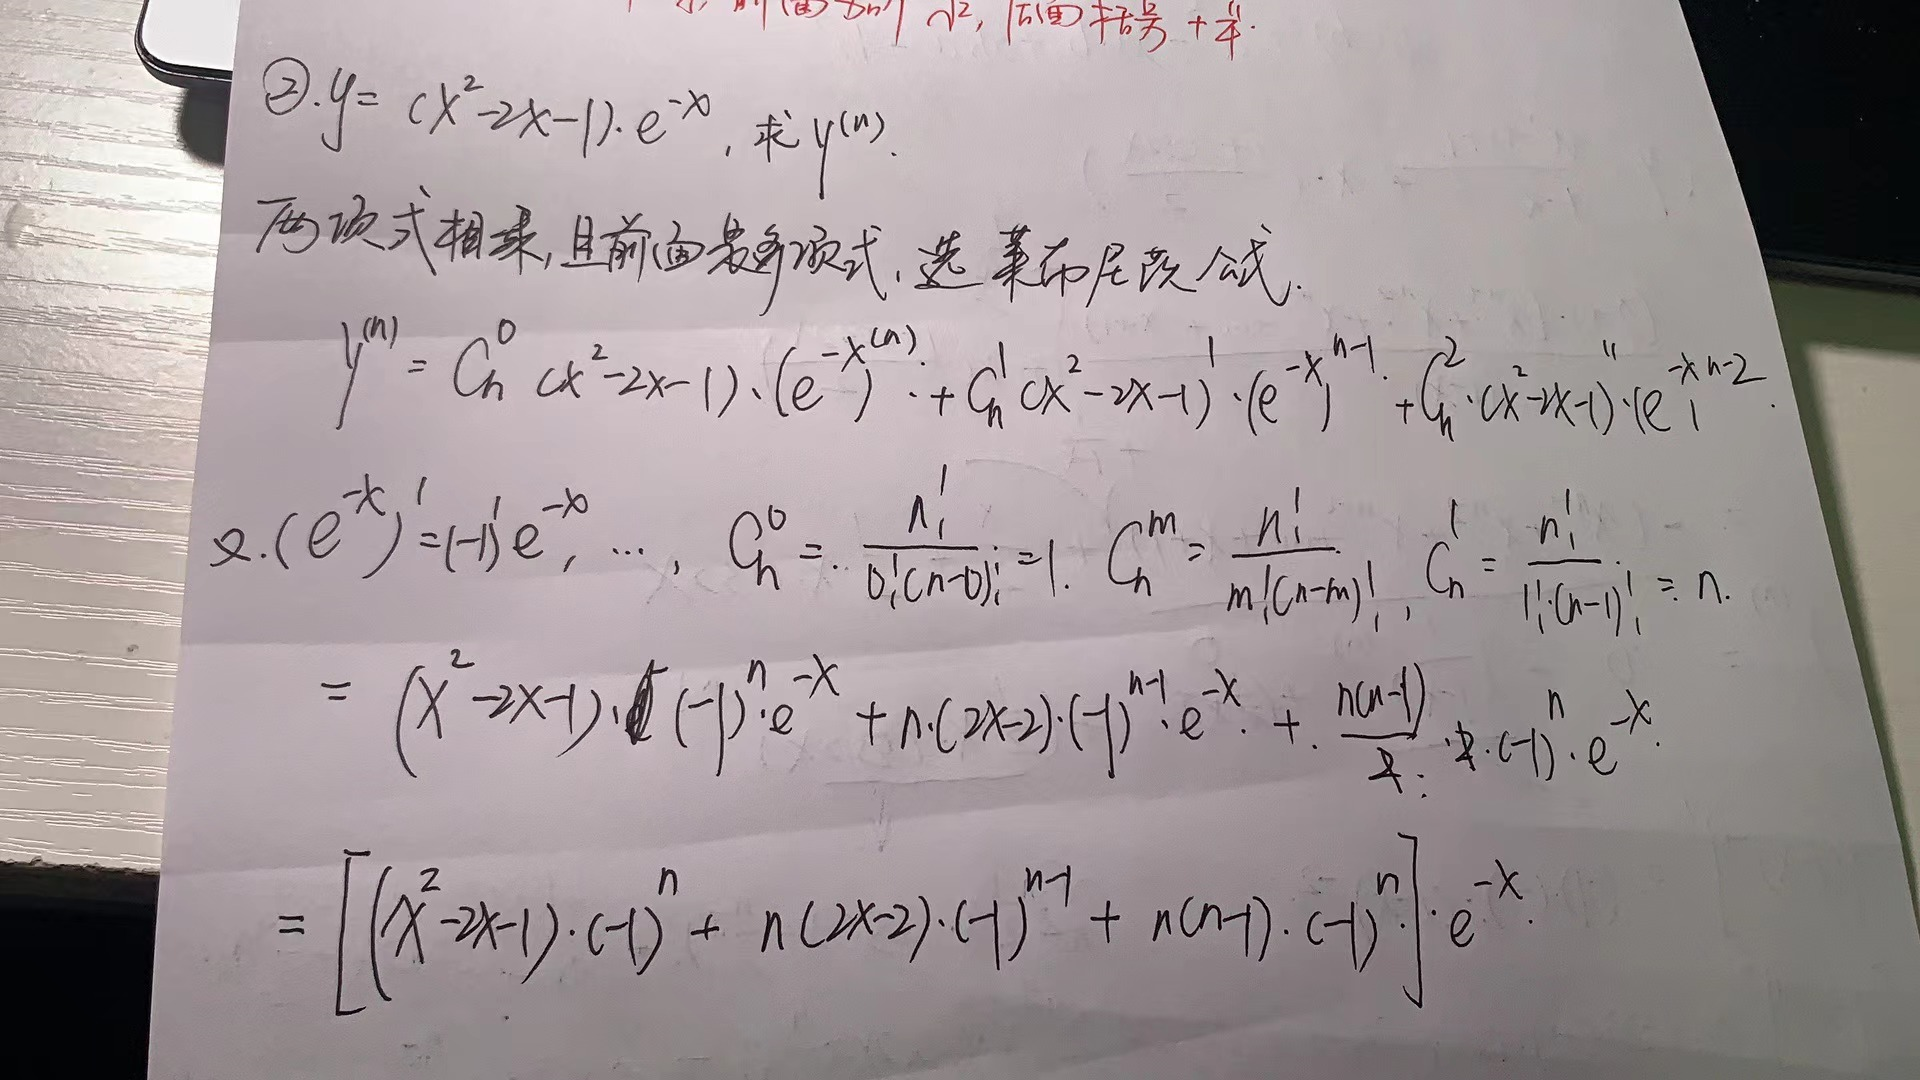 前面 , 后面括号 + "幸".
②. y = (x²-2x-1)·e^{-x}, 求 y^{(n)}.
两项式相乘,且前面是多项式,选莱布尼茨公式.
y^{(n)} = C_n^0 (x²-2x-1)·(e^{-x})^{(n)}·+ C_n^1 (x²-2x-1)'·(e^{-x})^{n-1}·+ C_n^2·(x²-2x-1)''·(e^{-x})^{n-2}.
又.(e^{-x})' = (-1)^1 e^{-x}, ..., C_n^0 = \frac{n!}{0!(n-0)!} = 1. C_n^m = \frac{n!}{m!(n-m)!}, C_n^1 = \frac{n!}{1!·(n-1)!} = n.
= (x²-2x-1)·(-1)^n·e^{-x} + n·(2x-2)·(-1)^{n-1}·e^{-x}·+ \frac{n(n-1)}{2}·2·(-1)^n·e^{-x}.
= [(x²-2x-1)·(-1)^n + n(2x-2)·(-1)^{n-1} + n(n-1)·(-1)^n]·e^{-x}.